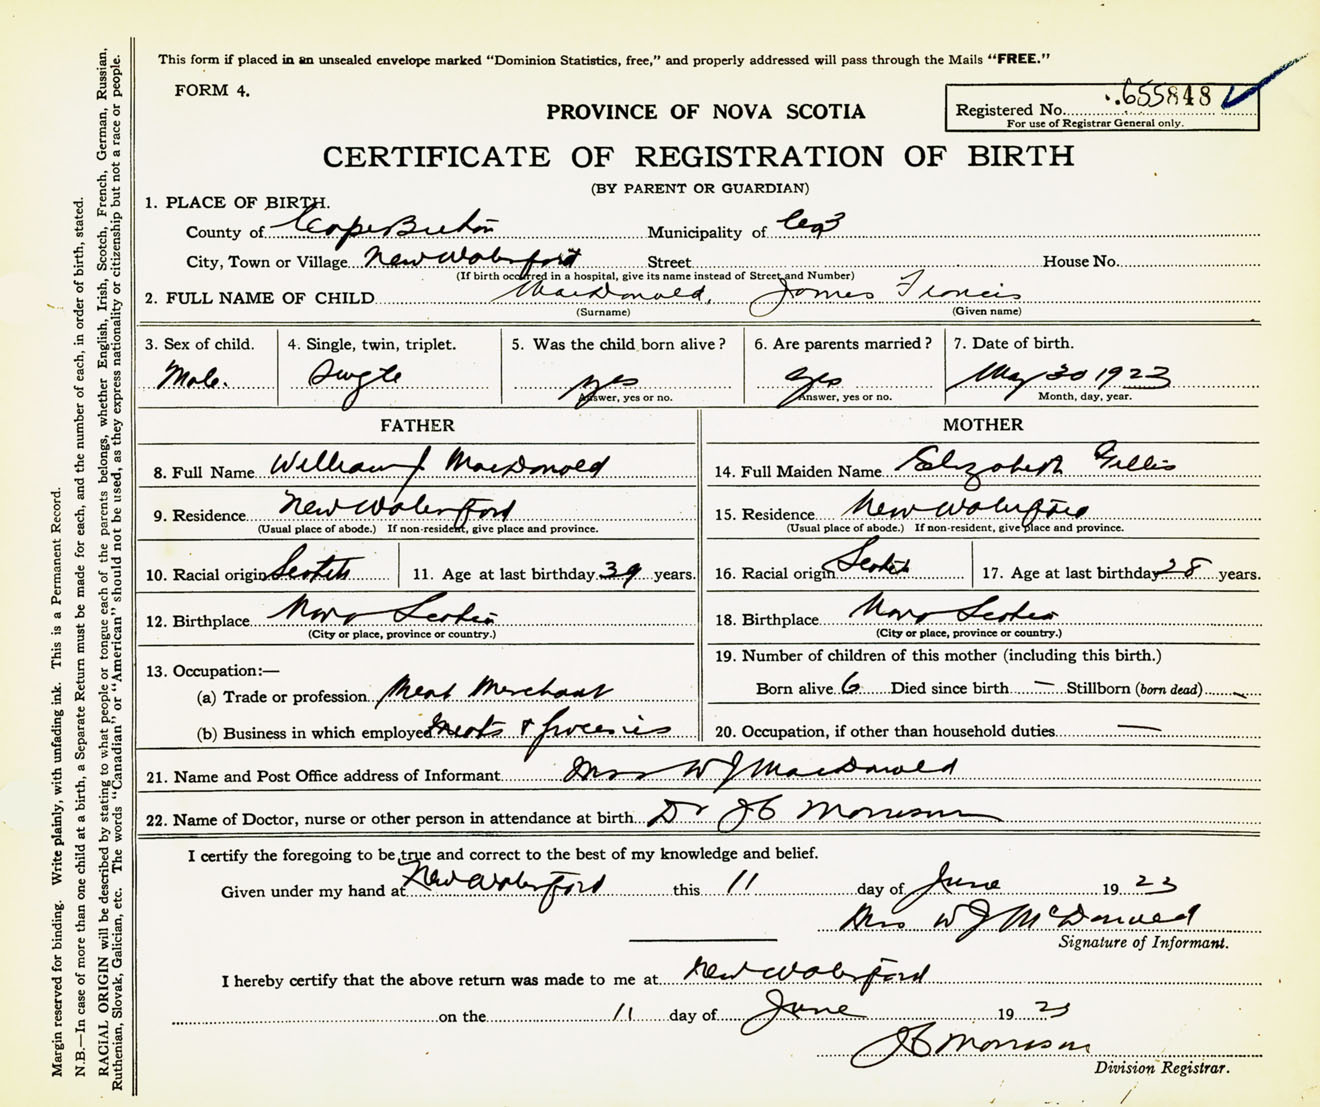 This form if placed in an unsealed envelope marked "Dominion Statistics, free," and properly addressed will pass through the Mails "FREE."
FORM 4.
Registered No. 655848
For use of Registrar General only.
PROVINCE OF NOVA SCOTIA
CERTIFICATE OF REGISTRATION OF BIRTH
(BY PARENT OR GUARDIAN)
1. PLACE OF BIRTH.
County of Cape Breton Municipality of
City, Town or Village New Waterford Street House No.
(If birth occurred in a hospital, give its name instead of Street and Number)
2. FULL NAME OF CHILD MacDonald, James Francis
(Surname) (Given name)
3. Sex of child. 4. Single, twin, triplet. 5. Was the child born alive? 6. Are parents married? 7. Date of birth.
Male. Single yes yes May 30 1923
Answer, yes or no. Answer, yes or no. Month, day, year.
FATHER MOTHER
8. Full Name William J MacDonald 14. Full Maiden Name Elizabeth Gillis
9. Residence New Waterford 15. Residence New Waterford
(Usual place of abode.) If non-resident, give place and province. (Usual place of abode.) If non-resident, give place and province.
10. Racial origin Scotch 11. Age at last birthday 39 years. 16. Racial origin Scotch 17. Age at last birthday 28 years.
12. Birthplace Nova Scotia 18. Birthplace Nova Scotia
(City or place, province or country.) (City or place, province or country.)
13. Occupation:— 19. Number of children of this mother (including this birth.)
(a) Trade or profession Meat Merchant Born alive 6 Died since birth — Stillborn (born dead) —
(b) Business in which employed Meats & Groceries 20. Occupation, if other than household duties —
21. Name and Post Office address of Informant Mrs W J MacDonald
22. Name of Doctor, nurse or other person in attendance at birth Dr J C Morrison
I certify the foregoing to be true and correct to the best of my knowledge and belief.
Given under my hand at New Waterford this 11 day of June 1923
Mrs W J McDonald
Signature of Informant.
I hereby certify that the above return was made to me at New Waterford
on the 11 day of June 1923
J C Morrison
Division Registrar.
Margin reserved for binding. Write plainly, with unfading ink. This is a Permanent Record.
N.B.—In case of more than one child at a birth, a Separate Return must be made for each, and the number of each, in order of birth, stated.
RACIAL ORIGIN will be described by stating to what people or tongue each of the parents belongs, whether English, Irish, Scotch, French, German, Russian,
Ruthenian, Slovak, Galician, etc. The words "Canadian" or "American" should not be used, as they express nationality or citizenship but not a race or people.